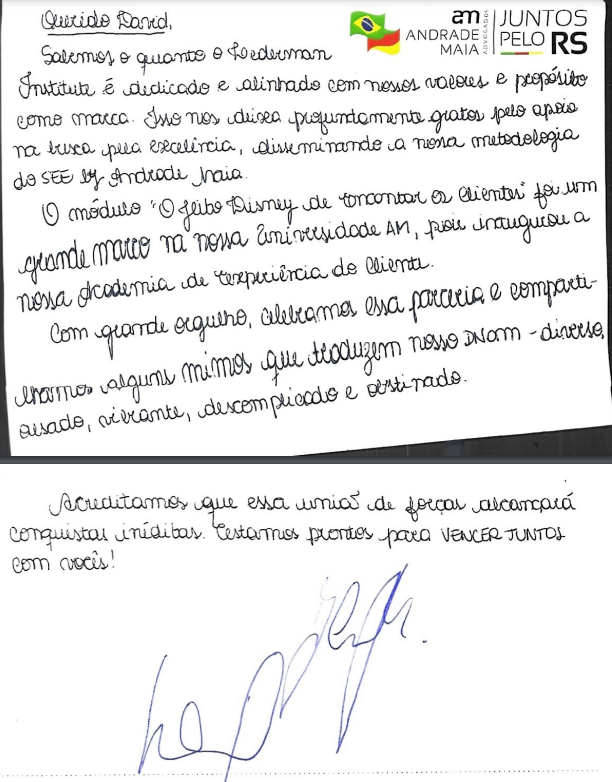 Querido David,
am
ANDRADE
MAIA
ADVOGADOS
JUNTOS
PELO RS
Sabemos o quanto o Lederman
Institute é dedicado e alinhado com nossos valores e propósito
como marca. Isso nos deixa profundamente gratos pelo apoio
na busca pela excelência, disseminando a nossa metodologia
do SEE by Andrade Maia.
O módulo "O Jeito Disney de Encantar os Clientes" foi um
grande marco na nossa Universidade AM, pois inaugurou a
nossa Academia de Experiência do Cliente.
Com grande orgulho, celebramos essa parceria e comparti-
lhamos alguns mimos que traduzem nosso DNAM - diverso,
ousado, vibrante, descomplicado e obstinado.
Acreditamos que essa união de forças alcançará
conquistas inéditas. Estamos prontos para VENCER JUNTOS
com vocês!